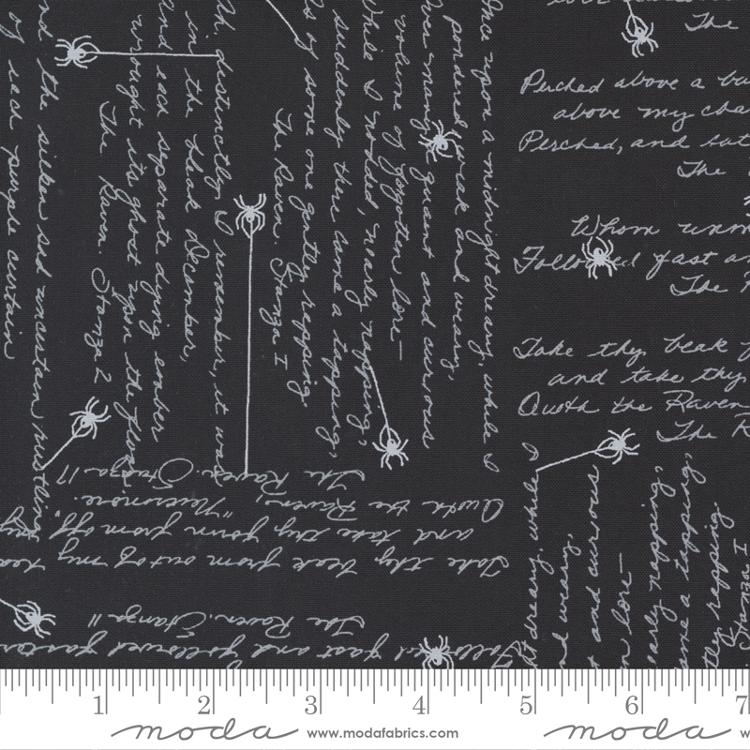 The
Perched above a
above my
Perched, and
The
Whom
Followed fast
The
Take thy beak
and take thy
Quoth the Raven
The R
Once upon a midnight dreary, while I
pondered weak and weary,
Over many quaint and curious
volume of forgotten lore—
While I nodded, nearly napping,
suddenly there came a tapping,
As of some one gently rapping,
The Raven. Stanza I
Ah, distinctly I remember, it was
in the bleak December,
and each separate dying ember
wrought its ghost upon the floor
The Raven. Stanza 2
And the silken sad uncertain rustling
of each purple curtain
Take thy beak from out of my
and take thy form from off
Quoth the Raven, "Nevermore.
The Raven. Stanza 17
Followed fast and followed faster
The Raven. Stanza 11
dreary,
and weary,
and curious
lore—
nearly napping,
came a tapping,
gently rapping,
1 2 3 4 5 6 7
moda www.modafabrics.com moda w